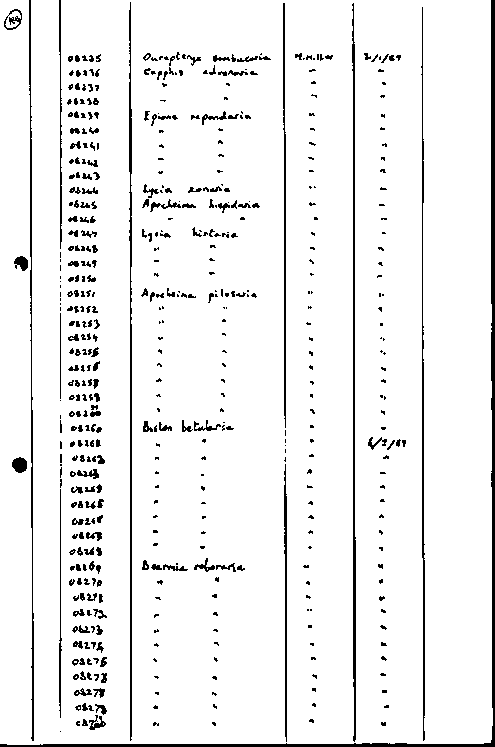 08235 Ourapteryx sambucaria M.M.llw 2/1/69
08236 Cepphis advenaria " "
08237 " " " "
08238 " " " "
08239 Epione repandaria " "
08240 " " " "
08241 " " " "
08242 " " " "
08243 " " " "
08244 Lycia zonaria " "
08245 Apocheima hispidaria " "
08246 " " " "
08247 Lycia hirtaria " "
08248 " " " "
08249 " " " "
08250 " " " "
08251 Apocheima pilosaria " "
08252 " " " "
08253 " " " "
08254 " " " "
08255 " " " "
08256 " " " "
08258 " " " "
08259 " " " "
" " " "
08260 Biston betularia " "
" " "
08263 " " " "
08263 " " " "
" " " "
08265 " " " "
" " " "
08268 " " " "
08268 " " " "
08269 Boarmia roboraria " "
08270 " " " "
08271 " " " "
08272 " " " "
08273 " " " "
08274 " " " "
08275 " " " "
08277 " " " "
08278 " " " "
" " " "
" " " "